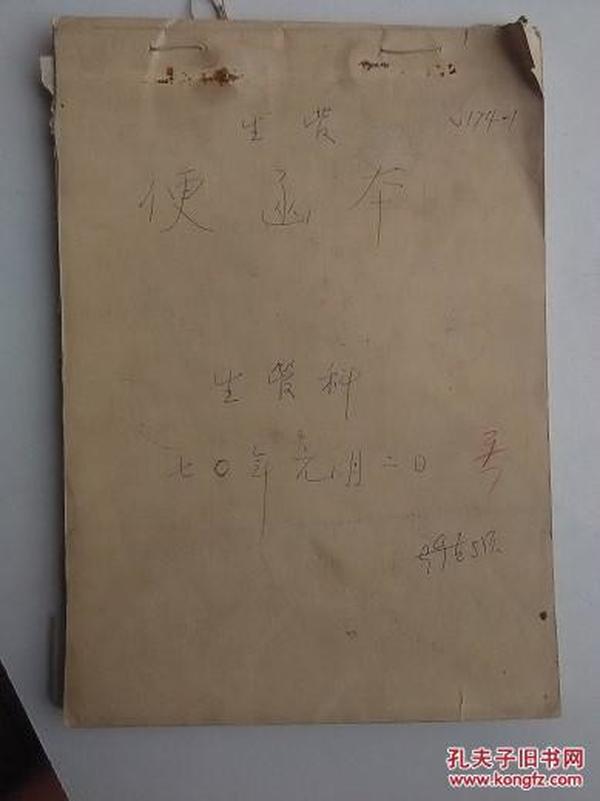 生管
V174-1
便函本
生管科
七〇年元月二日
孔夫子旧书网
www.kongfz.com